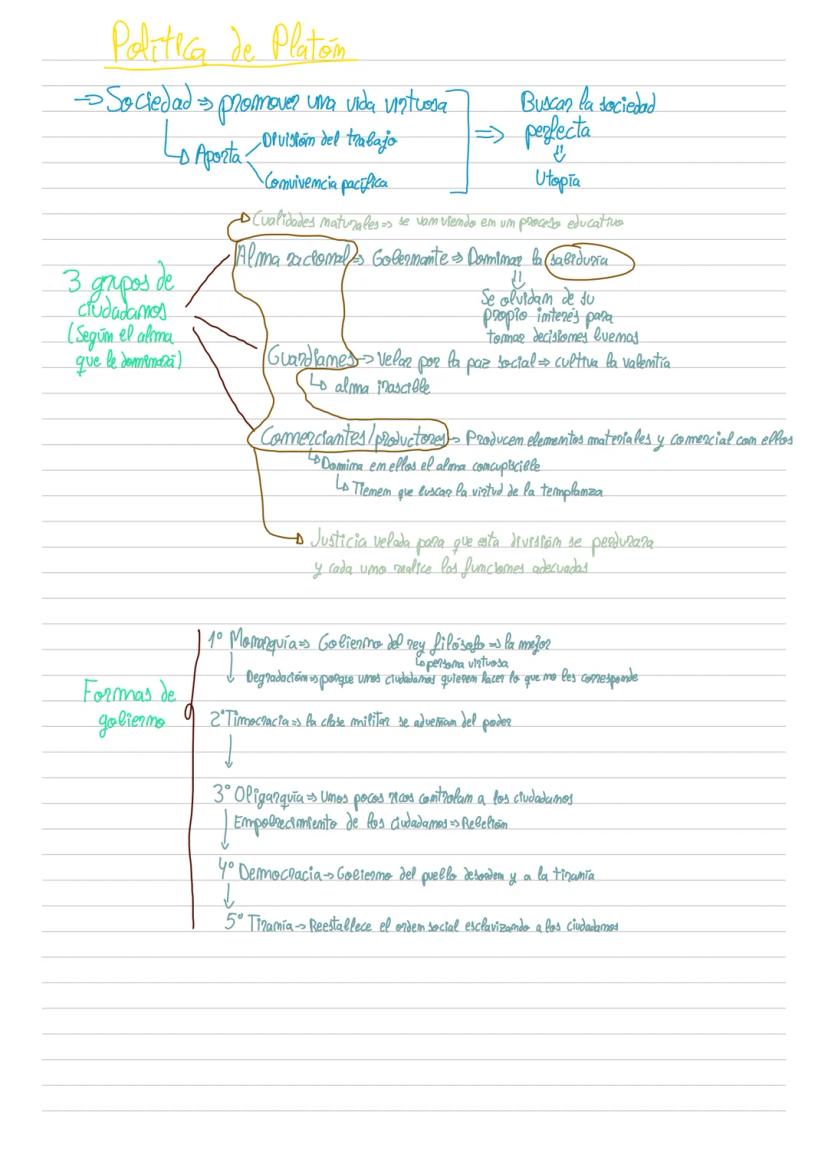 Política de Platón
→ Sociedad ⇒ promover una vida virtuosa
↳ Aporta
División del trabajo
Convivencia pacífica
⇒ Buscar la sociedad
perfecta
⇓
Utopía
Cualidades naturales ⇒ se van viendo en un proceso educativo
3 grupos de
ciudadanos
(Según el alma
que le dominará)
Alma racional ⇒ Gobernante ⇒ Dominar la sabiduría
⇓
Se olvidan de su
propio interés para
tomar decisiones buenas
Guardianes → Velar por la paz social ⇒ cultiva la valentía
↳ alma irascible
Comerciantes/productores → Producen elementos materiales y comercial con ellos
↳ Domina en ellos el alma concupiscible
↳ Tienen que buscar la virtud de la templanza
Justicia velada para que esta división se perdurara
y cada uno realice las funciones adecuadas
Formas de
gobierno
1º Monarquía ⇒ Gobierno del rey filósofo ⇒ la mejor
↳ persona virtuosa
↓ Degradación ⇒ porque unos ciudadanos quieren hacer lo que no les corresponde
2º Timocracia ⇒ la clase militar se adueñan del poder
↓
3º Oligarquía ⇒ Unos pocos ricos controlan a los ciudadanos
↓ Empobrecimiento de los ciudadanos ⇒ Rebelión
4º Democracia → Gobierno del pueblo desorden y a la tiranía
↓
5º Tiranía → Reestablece el orden social esclavizando a los ciudadanos